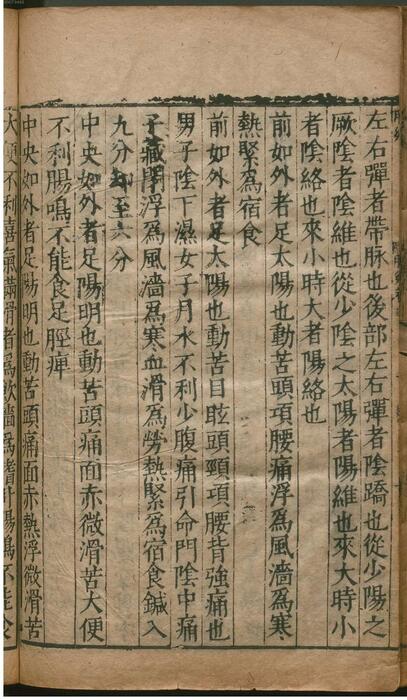 左右彈者帶脉也後部左右彈者陰蹻也從少陽之
厥陰者陰維也從少陰之太陽者陽維也來大時小
者陰絡也來小時大者陽絡也
前如外者足太陽也動苦頭項腰痛浮為風濇為寒
熱緊為宿食
前如外者足太陽也動苦目眩頭頸項腰背強痛也
男子陰下濕女子月水不利少腹痛引命門陰中痛
子藏閉浮為風濇為寒血滑為勞熱緊為宿食鍼入
九分却至六分
中央如外者足陽明也動苦頭痛面赤微滑苦大便
不利腸鳴不能食足脛痺
中央如外者足陽明也動苦頭痛面赤熱浮微滑苦
大便不利喜氣滿滑者為飲濇為嗜卧腸鳴不能食